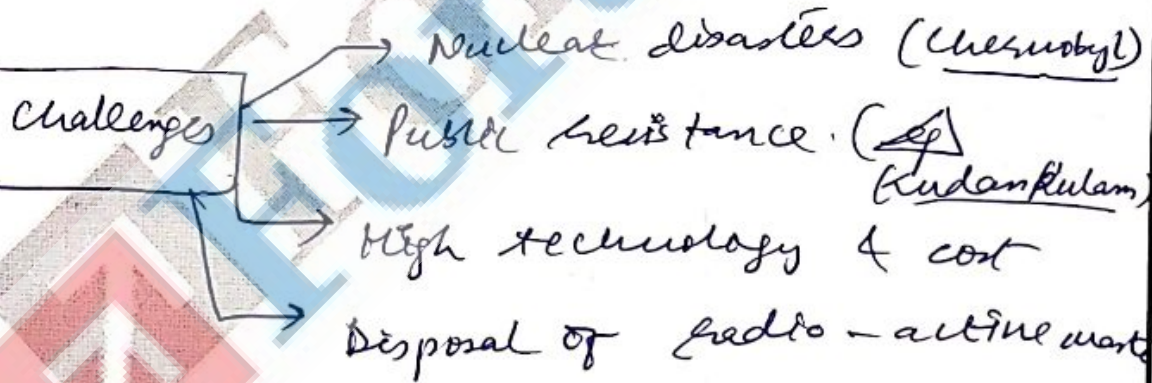 Nuclear disasters (Chernobyl)
Challenges
Public resistance. (eg
(Kudankulam)
High technology & cost
Disposal of radio-active waste